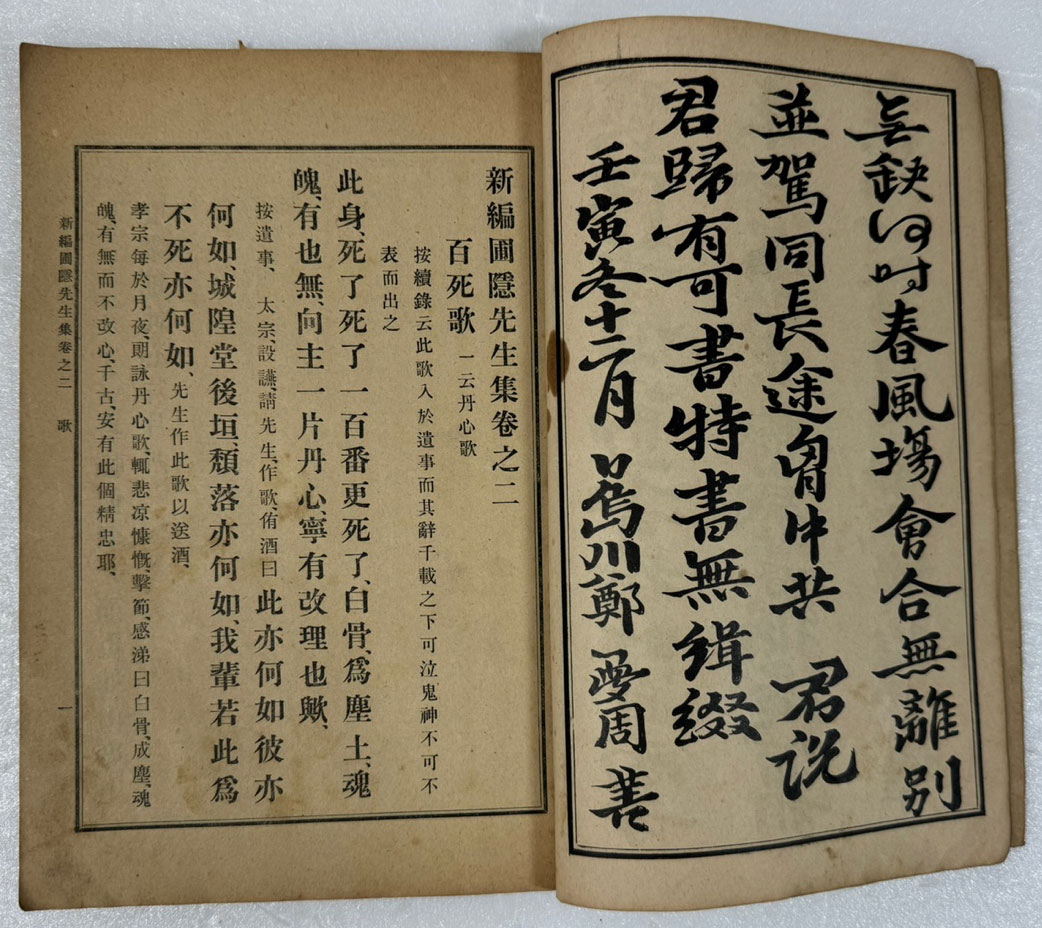 無缺何时春風塲會合無離別
並駕同長途胷中共 君说
君歸有可書特書無緝綴
壬寅冬十二月 烏川鄭 夢周
新編圃隱先生集卷之二
百死歌 一云丹心歌
按續錄云此歌入於遺事而其辭千載之下可泣鬼神不可不
表而出之
此身、死了死了一百番更死了、白骨、爲塵土、魂
魄、有也無、向主一片丹心、寧有改理也歟、
按遺事、 太宗、設讌、請先生、作歌、侑酒曰 此亦何如彼亦
何如、城隍堂後垣、頹落亦何如、我輩若此爲
不死亦何如、先生作此歌以送酒、
孝宗每於月夜、朗詠丹心歌、輒悲凉慷慨、擊節、感涕曰白骨、成塵、魂
魄、有無而不改心、千古、安有此個精忠耶、
新編圃隱先生集卷之二 歌 一